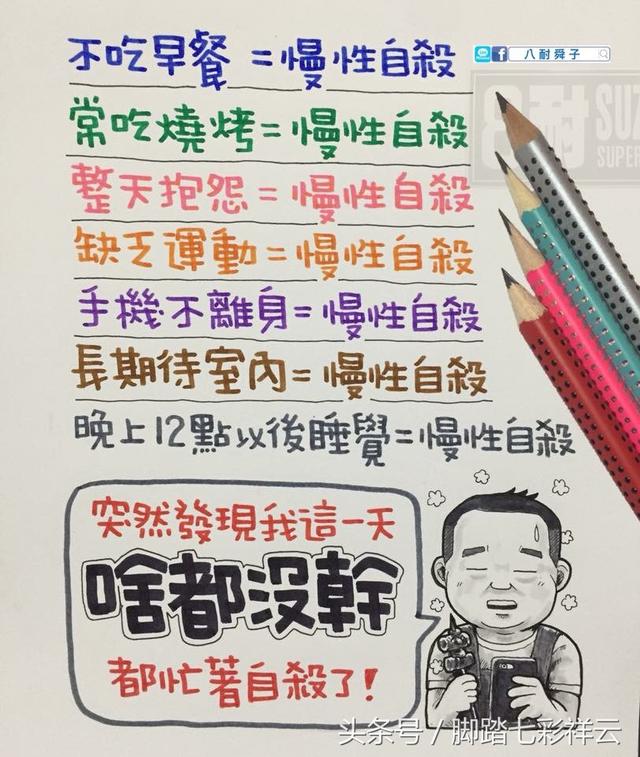 八耐舜子
不吃早餐 = 慢性自殺
常吃燒烤 = 慢性自殺
整天抱怨 = 慢性自殺
缺乏運動 = 慢性自殺
手機不離身 = 慢性自殺
長期待室內 = 慢性自殺
晚上12點以後睡覺 = 慢性自殺
突然發現我這一天
啥都沒幹
都忙著自殺了!
8耐
SUZ
SUPER
头条号 / 脚踏七彩祥云